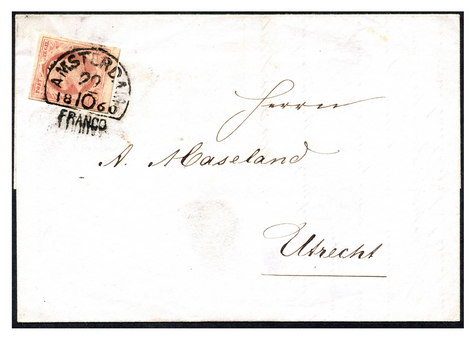 AMSTERDAM
22
18 10 60
FRANCO
Herrn
A. Maseland
Utrecht